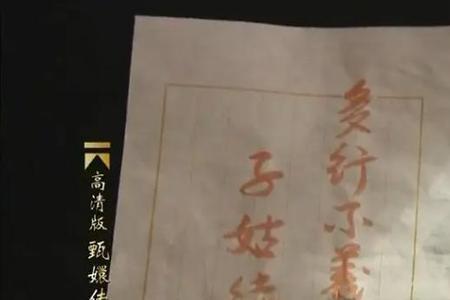 多行不義
子姑待
高清版 甄嬛傳